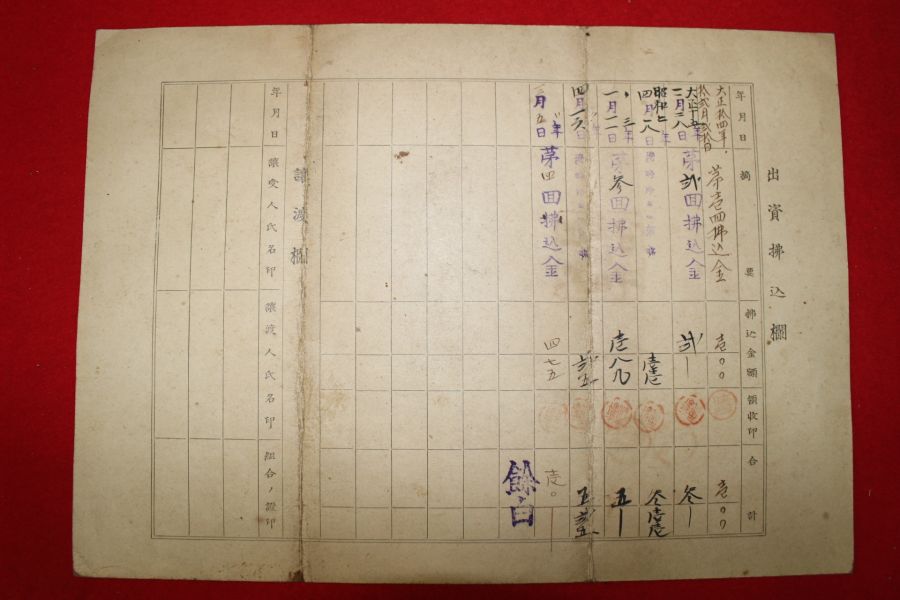 出資拂込欄
年月日
摘要
拂込金額
領收印
合計
大正拾四年
拾弐月弐拾日
第壱回拂込金
壱〇〇
壱〇〇
大正十五年
二月二八日
第弐回拂込金
弐|
参|
昭和二年
四月一八日
壱壱
参壱壱
三年
一月二一日
第参回拂込金
壱八九
五|
四月一六日
弐五
五弐五
月五日
第四回拂込金
四七五
壱〇|
餘白
讓渡欄
年月日
讓受人氏名印
讓渡人氏名印
組合ノ證印